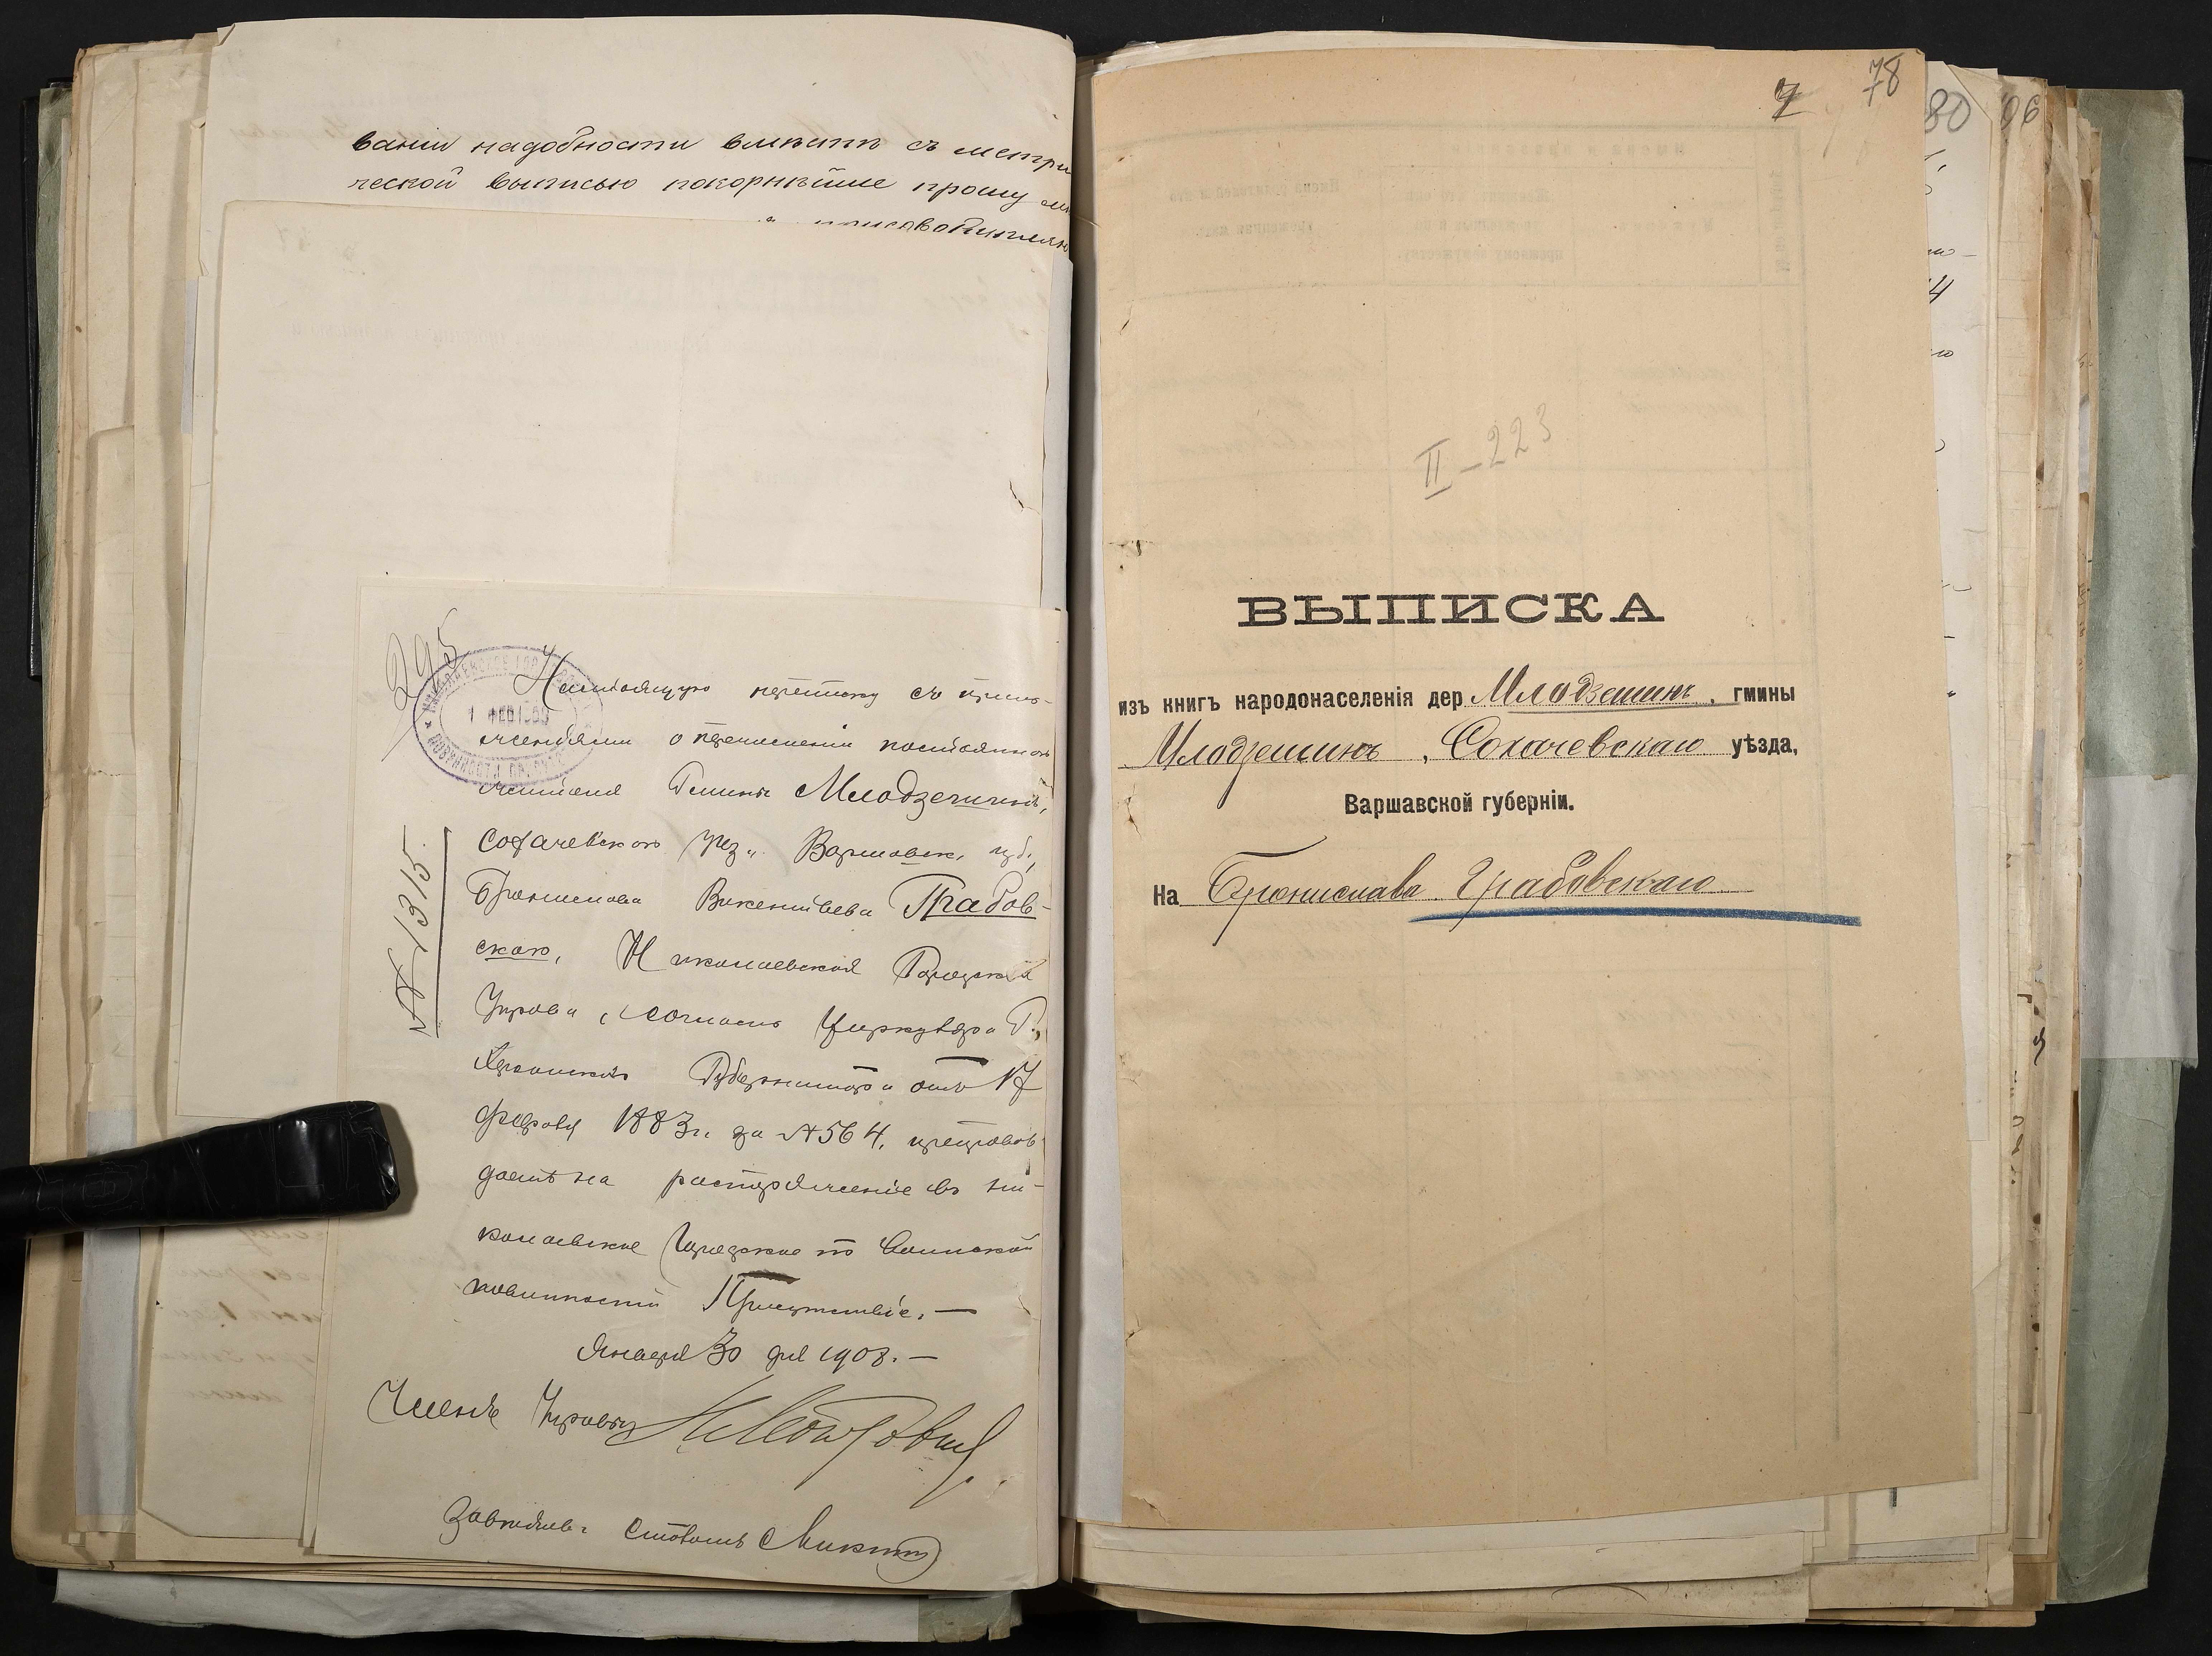 вании надобности вмѣстѣ съ метри
ческой выписью покорнѣйше прошу
295
Настоящую переписку съ прило-
женіями о перечисленіи постояннаго
жителя Гмины Млодзешинъ,
Сохачевскаго уѣз. Варшавск. губ.,
Бронислава Викентьева Грабов-
скаго, Николаевская Городская
Управа, согласно Циркуляра Г.
Херсонскаго Губернатора отъ 17
февраля 1883 г. за № 564, препровож
даетъ на распоряженіе въ Ни-
колаевское Городское по Воинской
повинности Присутствіе. —
Января 30 дня 1908. —
№ 1315.
Членъ Управы
Завѣдыв. Столомъ
7 78
II - 223
ВЫПИСКА
изъ книгъ народонаселенія дер Млодзешинъ, гмины
Млодзешинъ, Сохачевскаго уѣзда,
Варшавской губерніи.
На Бронислава Грабовскаго
80
96